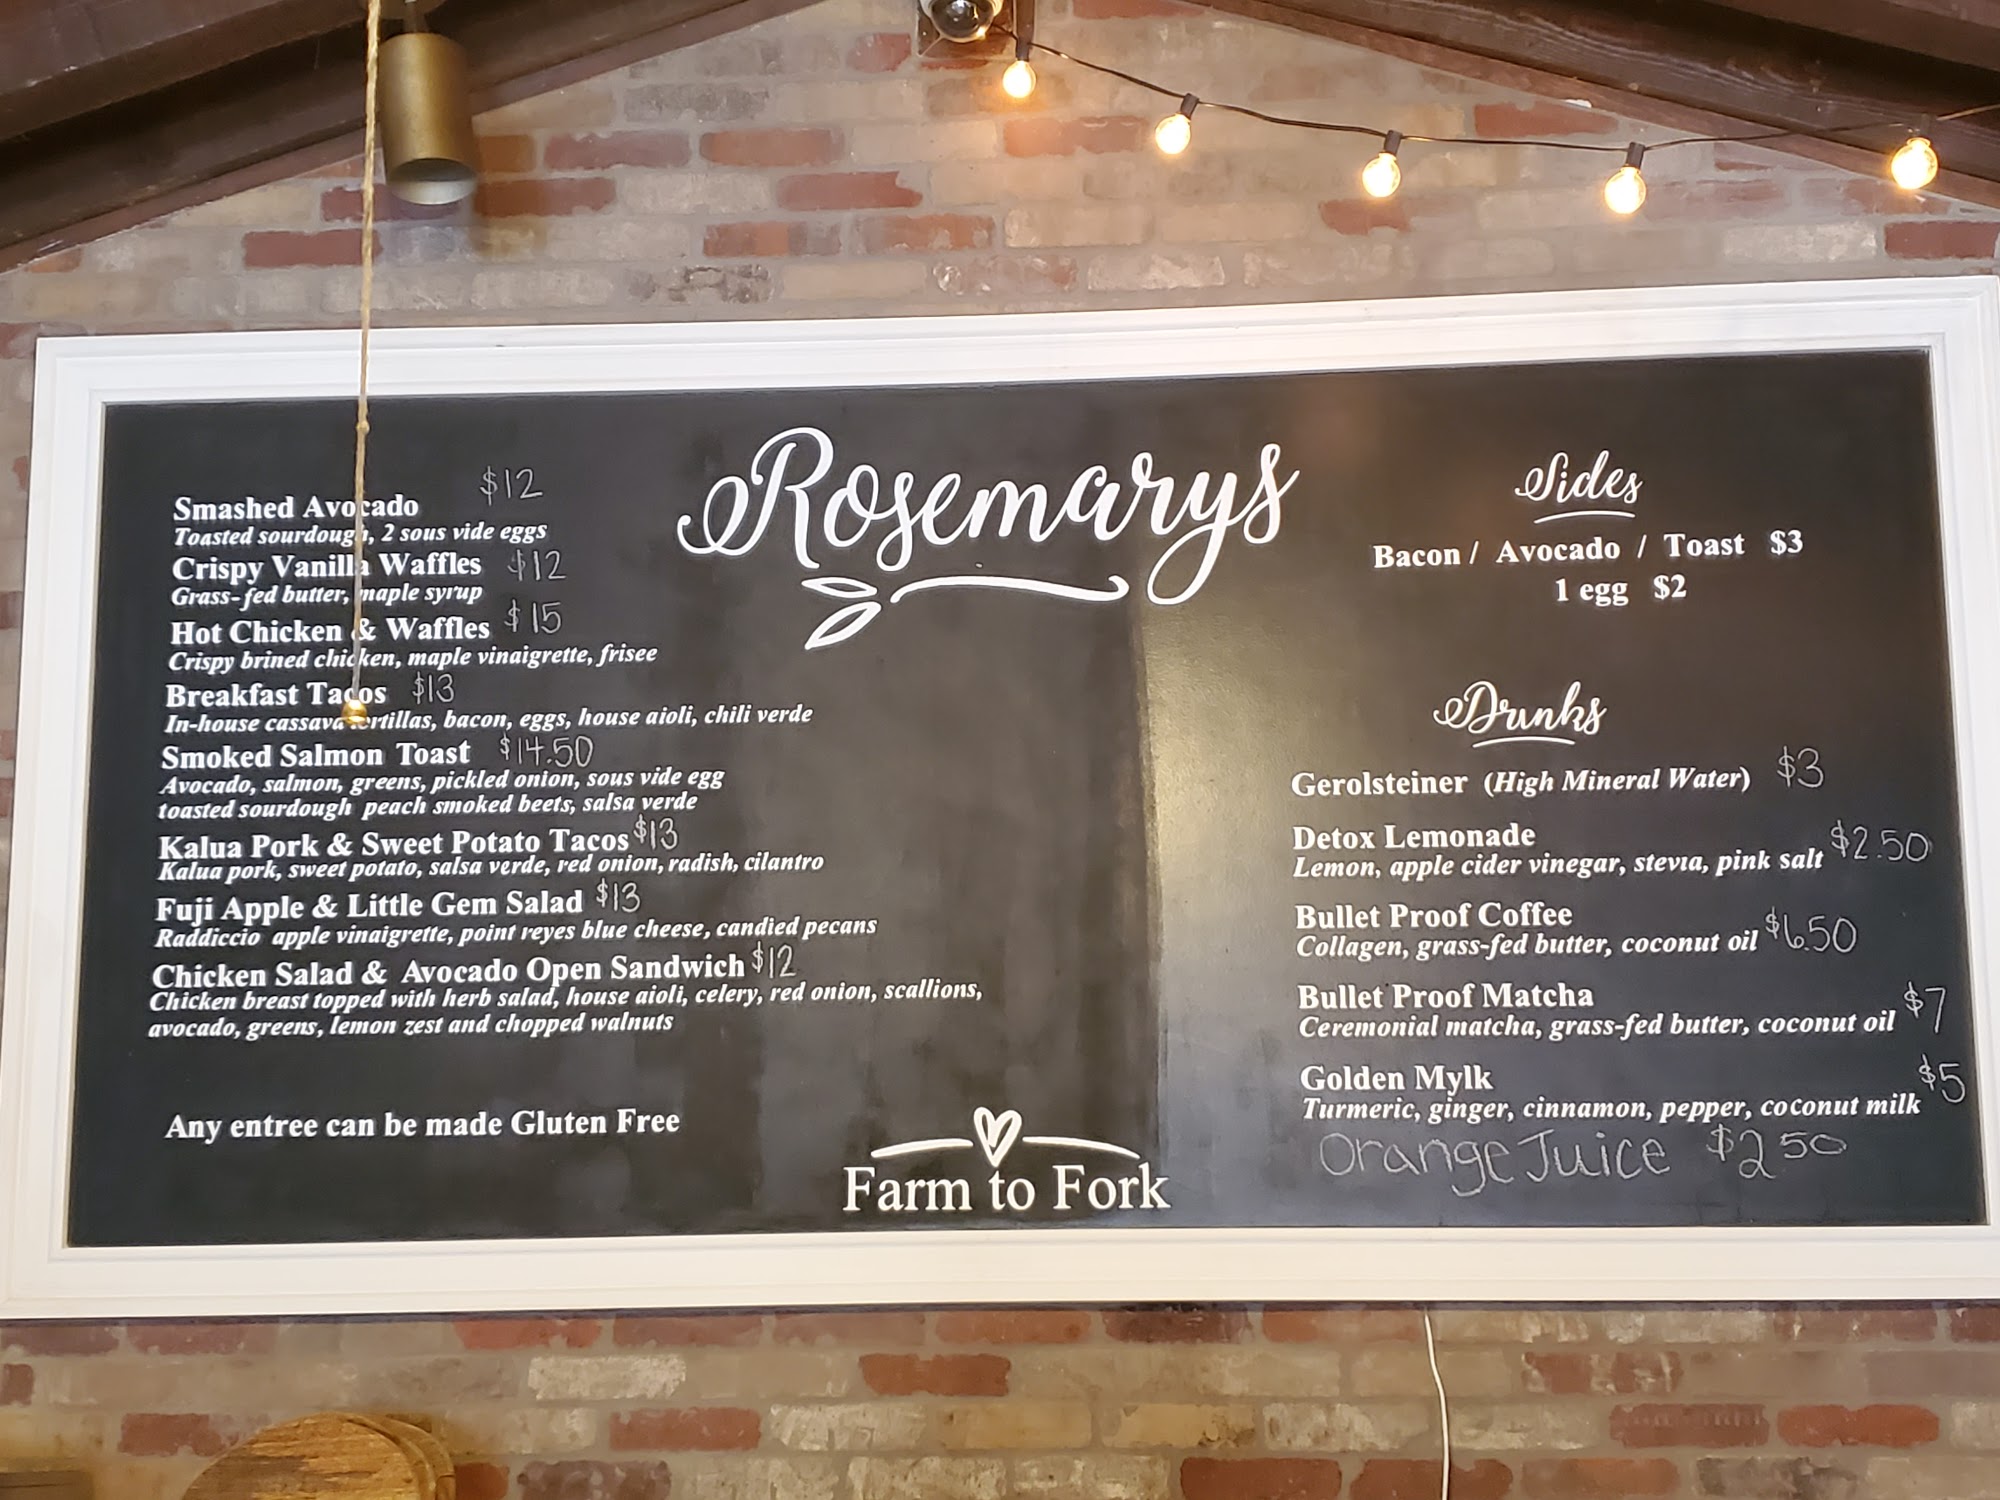 Rosemarys
Smashed Avocado $12
Toasted sourdough, 2 sous vide eggs
Crispy Vanilla Waffles $12
Grass-fed butter, maple syrup
Hot Chicken & Waffles $15
Crispy brined chicken, maple vinaigrette, frisee
Breakfast Tacos $13
In-house cassava tortillas, bacon, eggs, house aioli, chili verde
Smoked Salmon Toast $14.50
Avocado, salmon, greens, pickled onion, sous vide egg
toasted sourdough peach smoked beets, salsa verde
Kalua Pork & Sweet Potato Tacos $13
Kalua pork, sweet potato, salsa verde, red onion, radish, cilantro
Fuji Apple & Little Gem Salad $13
Raddiccio apple vinaigrette, point reyes blue cheese, candied pecans
Chicken Salad & Avocado Open Sandwich $12
Chicken breast topped with herb salad, house aioli, celery, red onion, scallions,
avocado, greens, lemon zest and chopped walnuts
Any entree can be made Gluten Free
Farm to Fork
Sides
Bacon / Avocado / Toast $3
1 egg $2
Drinks
Gerolsteiner (High Mineral Water) $3
Detox Lemonade
Lemon, apple cider vinegar, stevia, pink salt $2.50
Bullet Proof Coffee
Collagen, grass-fed butter, coconut oil $6.50
Bullet Proof Matcha
Ceremonial matcha, grass-fed butter, coconut oil $7
Golden Mylk
Turmeric, ginger, cinnamon, pepper, coconut milk $5
Orange Juice $2 50